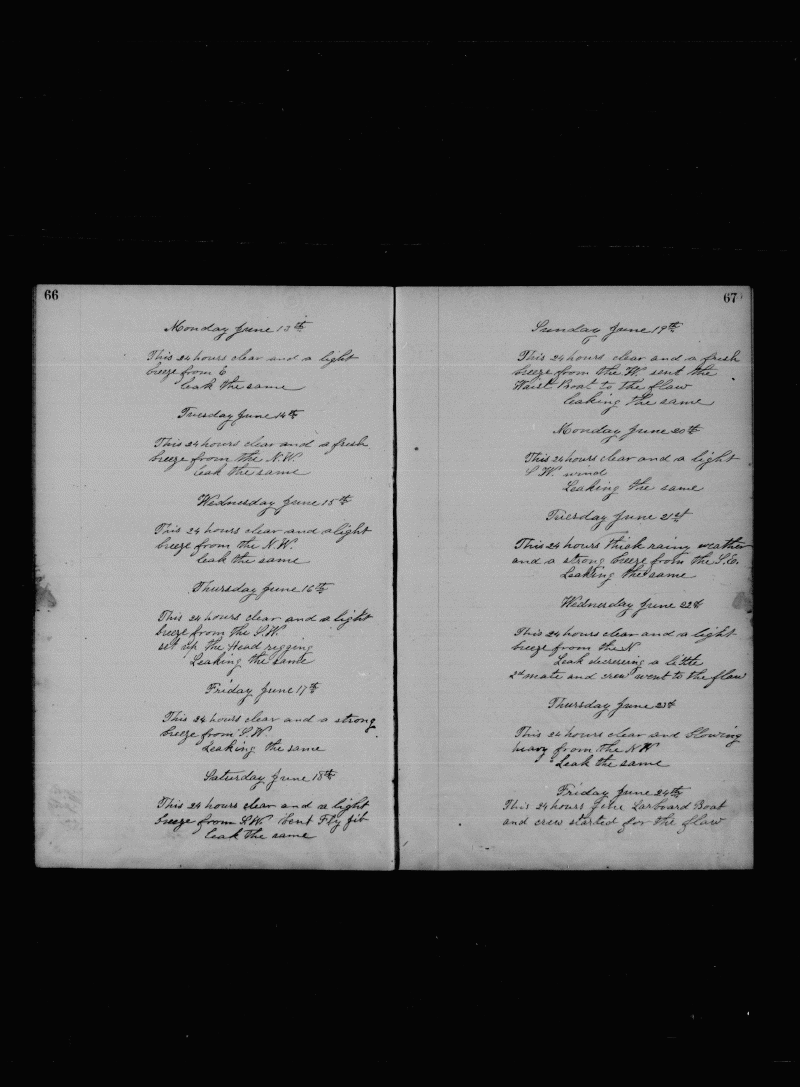 66
Monday June 13th
This 24 hours clear and a light
breeze from E
leak the same
Tuesday June 14th
This 24 hours clear and a fresh
breeze from the N.W.
leak the same
Wednesday June 15th
This 24 hours clear and a light
breeze from the N.W.
leak the same
Thursday June 16th
This 24 hours clear and a light
breeze from the S.W.
set up the Head rigging
Leaking the same
Friday June 17th
This 24 hours clear and a strong
breeze from S.W.
Leaking the same
Saturday June 18th
This 24 hours clear and a light
breeze from S.W. bent Fly jib
leak the same
67
Sunday June 19th
This 24 hours clear and a fresh
breeze from the W. sent the
Waist Boat to the flaw
leaking the same
Monday June 20th
This 24 hours clear and a light
S.W. wind
Leaking the same
Tuesday June 21st
This 24 hours thick rainy weather
and a strong breeze from the S.E.
Leaking the same
Wednesday June 22d
This 24 hours clear and a light
breeze from the N
Leak decreeing a little
2d mate and crew went to the flaw
Thursday June 23d
This 24 hours clear and blowing
heavy from the N.W
Leak the same
Friday June 24th
This 24 hours fine Larboard Boat
and crew started for the flaw